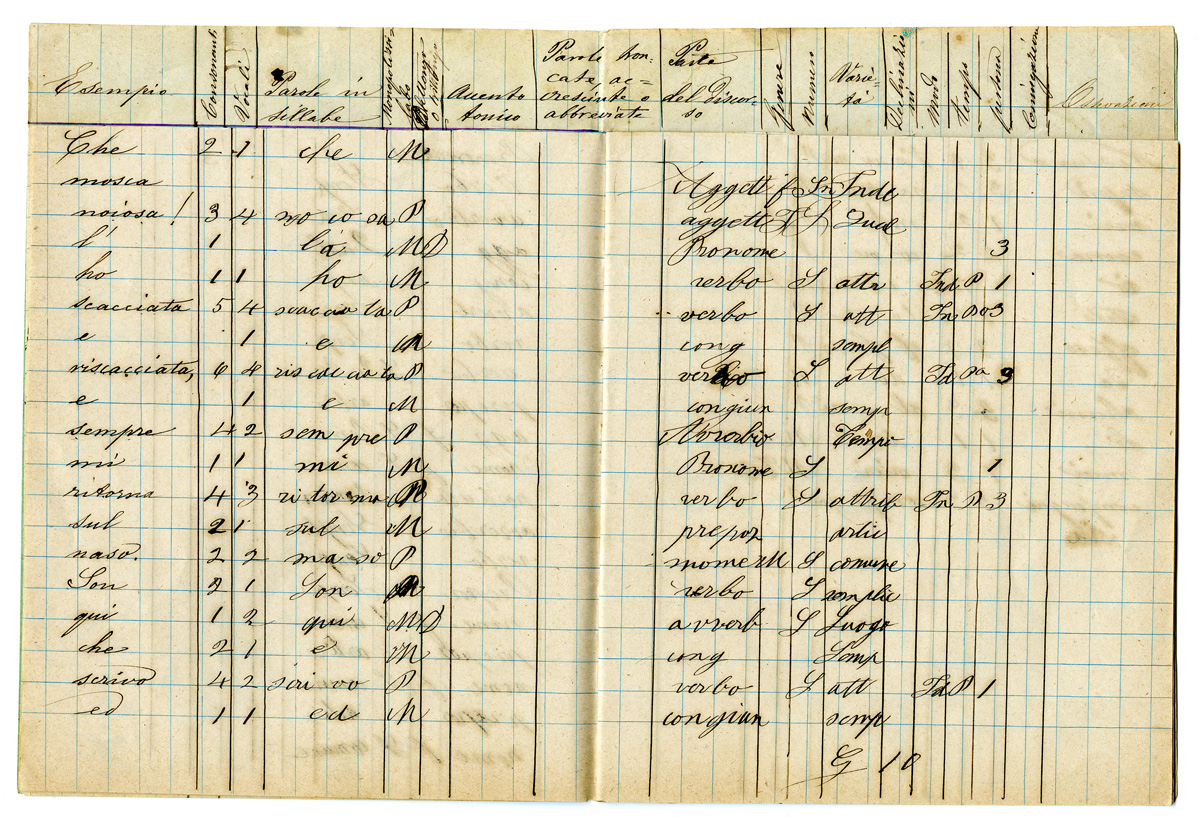 Esempio Consonanti Vocali Parole in sillabe Accento tonico Parole troncate accresciute o abbreviate Parte del discorso Genere Numero Varietà Modo Tempo Persona Coniugazione Osservazioni
Che 2 1 che M
mosca Aggett f Sn Inde
noiosa! 3 4 no io sa P aggett F S Qual
l' 1 la M D Pronome 3
ho 1 1 ho M verbo S attr Ind P 1
scacciata 5 4 scac cia ta P verbo S att In Pa 3
e 1 e M cong sempl
riscacciata, 6 4 ris cac cia ta P verbo S att Id Pa 3
e 1 e M congiun semp
sempre 4 2 sem pre P Avverbio Tempo
mi 1 1 mi M Pronome S 1
ritorna 4 3 ri tor na P verbo S attrib In P 3
sul 2 1 sul M prepoz artic
naso. 2 2 na so P nome M S comune
Son 2 1 Son M verbo S semplic
qui 1 2 qui M D avverb S Luogo
che 2 1 e M cong Semp
scrivo 4 2 scri vo P verbo S att Id P 1
ed 1 1 ed M congiun semp
G 10